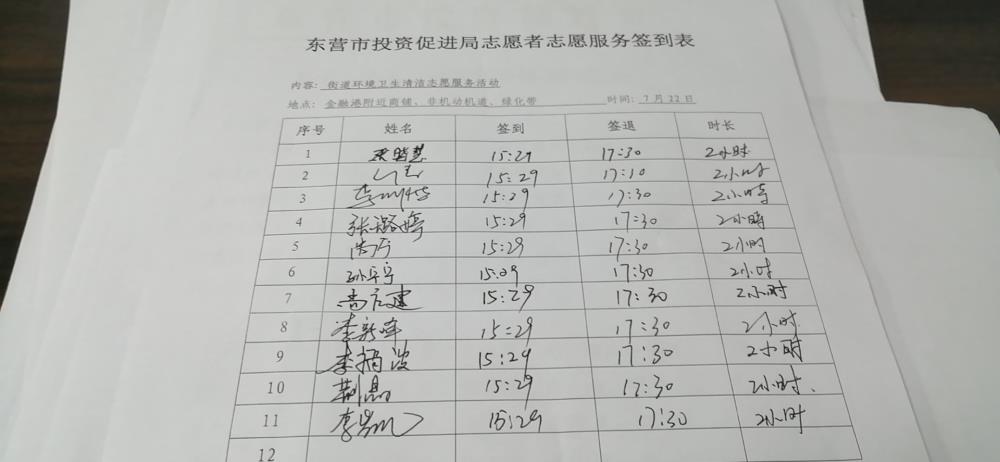 东营市投资促进局志愿者志愿服务签到表
内容: 街道环境卫生清洁志愿服务活动
地点: 金融港附近商铺、非机动机道、绿化带 时间: 7月22日
序号 姓名 签到 签退 时长
1 15:29 17:30 2小时
2 15:29 17:10 2小时
3 15:29 17:30 2小時
4 张璐婷 15:29 17:30 2小時
5 15:29 17:30 2小时
6 孙宁宁 15:09 17:30 2小时
7 15:29 17:30 2小时
8 李新峰 15:29 17:30 2小时
9 15:29 17:30 2小时
10 荆晶 15:29 17:30 2小时.
11 15:29 17:30 2小时
12